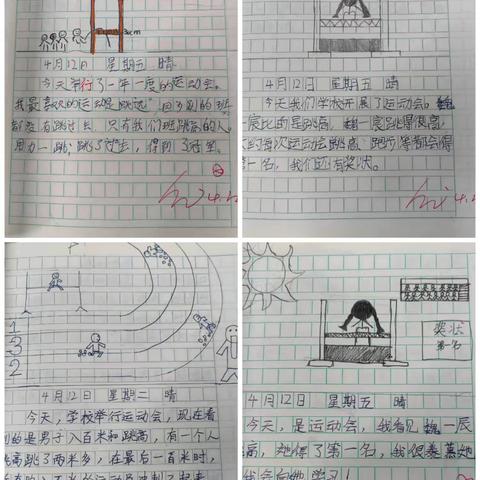 3cm
4月12日 星期五 晴
今天举行了一年一度的运动会。
我最喜欢的运动是跳远
都没有跳过去,只有我们班跳高的人,
用力一跳,跳了过去,得到了冠军。
4月12日 星期五 晴
今天我们学校开展了运动会。魏
一辰比的是跳高,魏一辰跳得很高,
次运动会跳高、跑步等都会得
第一名,我们还有奖状。
1
3
2
4月12日 星期二 晴
今天,学校举行运动会,现在看
到的是男子八百米和跳高,有一个人
跳高跳了两米多,在最后一百米时,
奖状
第一名
4月12日 星期五 晴
今天,是运动会,我看见魏一辰
高,她得了第一名,我很羡慕她
我会向她学习!